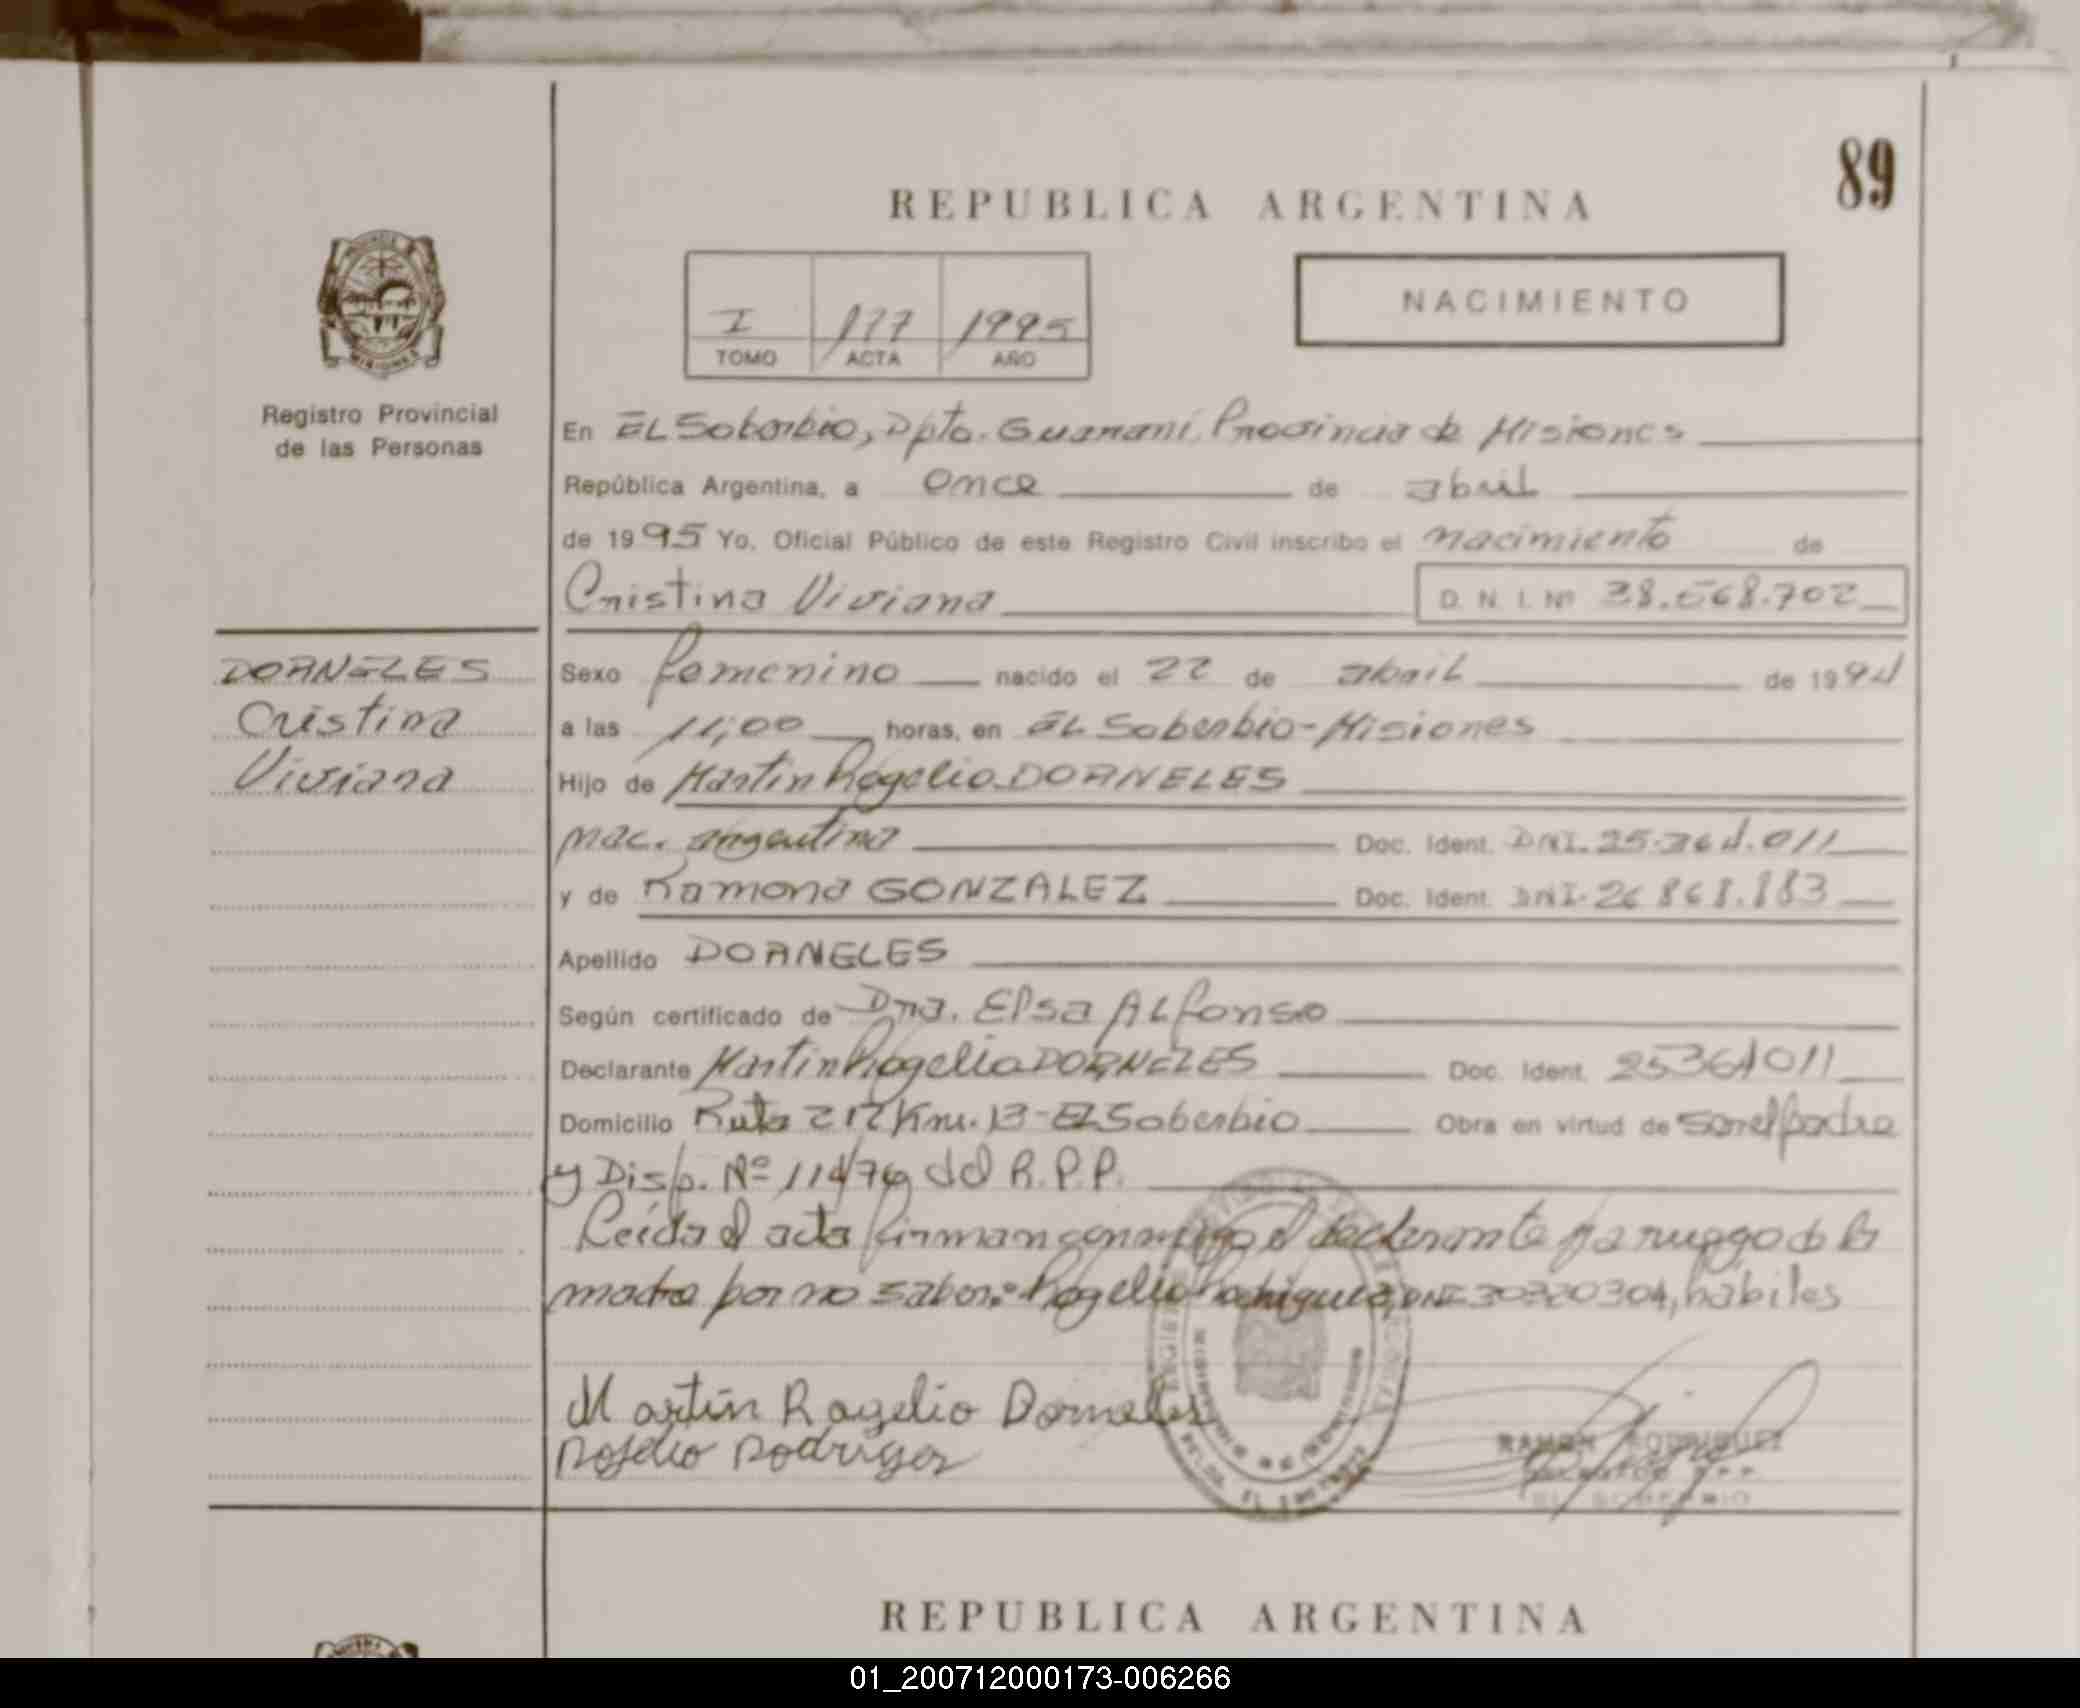 89
REPUBLICA ARGENTINA
NACIMIENTO
I 177 1995
TOMO ACTA AÑO
MISIONES
Registro Provincial
de las Personas
En EL Soberbio, Dpto. Guaraní, Provincia de Misiones
República Argentina, a once de abril
de 1995 Yo, Oficial Público de este Registro Civil inscribo el nacimiento de
Cristina Viviana D. N. I. Nº 38.568.702
DORNELES
Cristina
Viviana
Sexo femenino nacido el 22 de abril de 1994
a las 11,00 horas, en EL Soberbio-Misiones
Hijo de Martin Rogelio DORNELES
nac. argentina Doc. Ident. DNI. 25.364.011
y de Ramona GONZALEZ Doc. Ident. DNI. 26.868.883
Apellido DORNELES
Según certificado de Dra. Elsa ALfonso
Declarante Martin Rogelio DORNELES Doc. Ident. 25364011
Domicilio Ruta 212 Km. 13 - EL Soberbio Obra en virtud de ser el padre
y Disp. Nº 114/76 del R.P.P.
Leída el acta firman conmigo el declarante y a ruego de la
madre por no saber: Rogelio Rodriguez, DNI 30320304, hábiles
Martin Rogelio Dorneles
Rogelio Rodriguez
RAMON RODRIGUEZ
EL SOBERBIO
REPUBLICA ARGENTINA
01_200712000173-006266